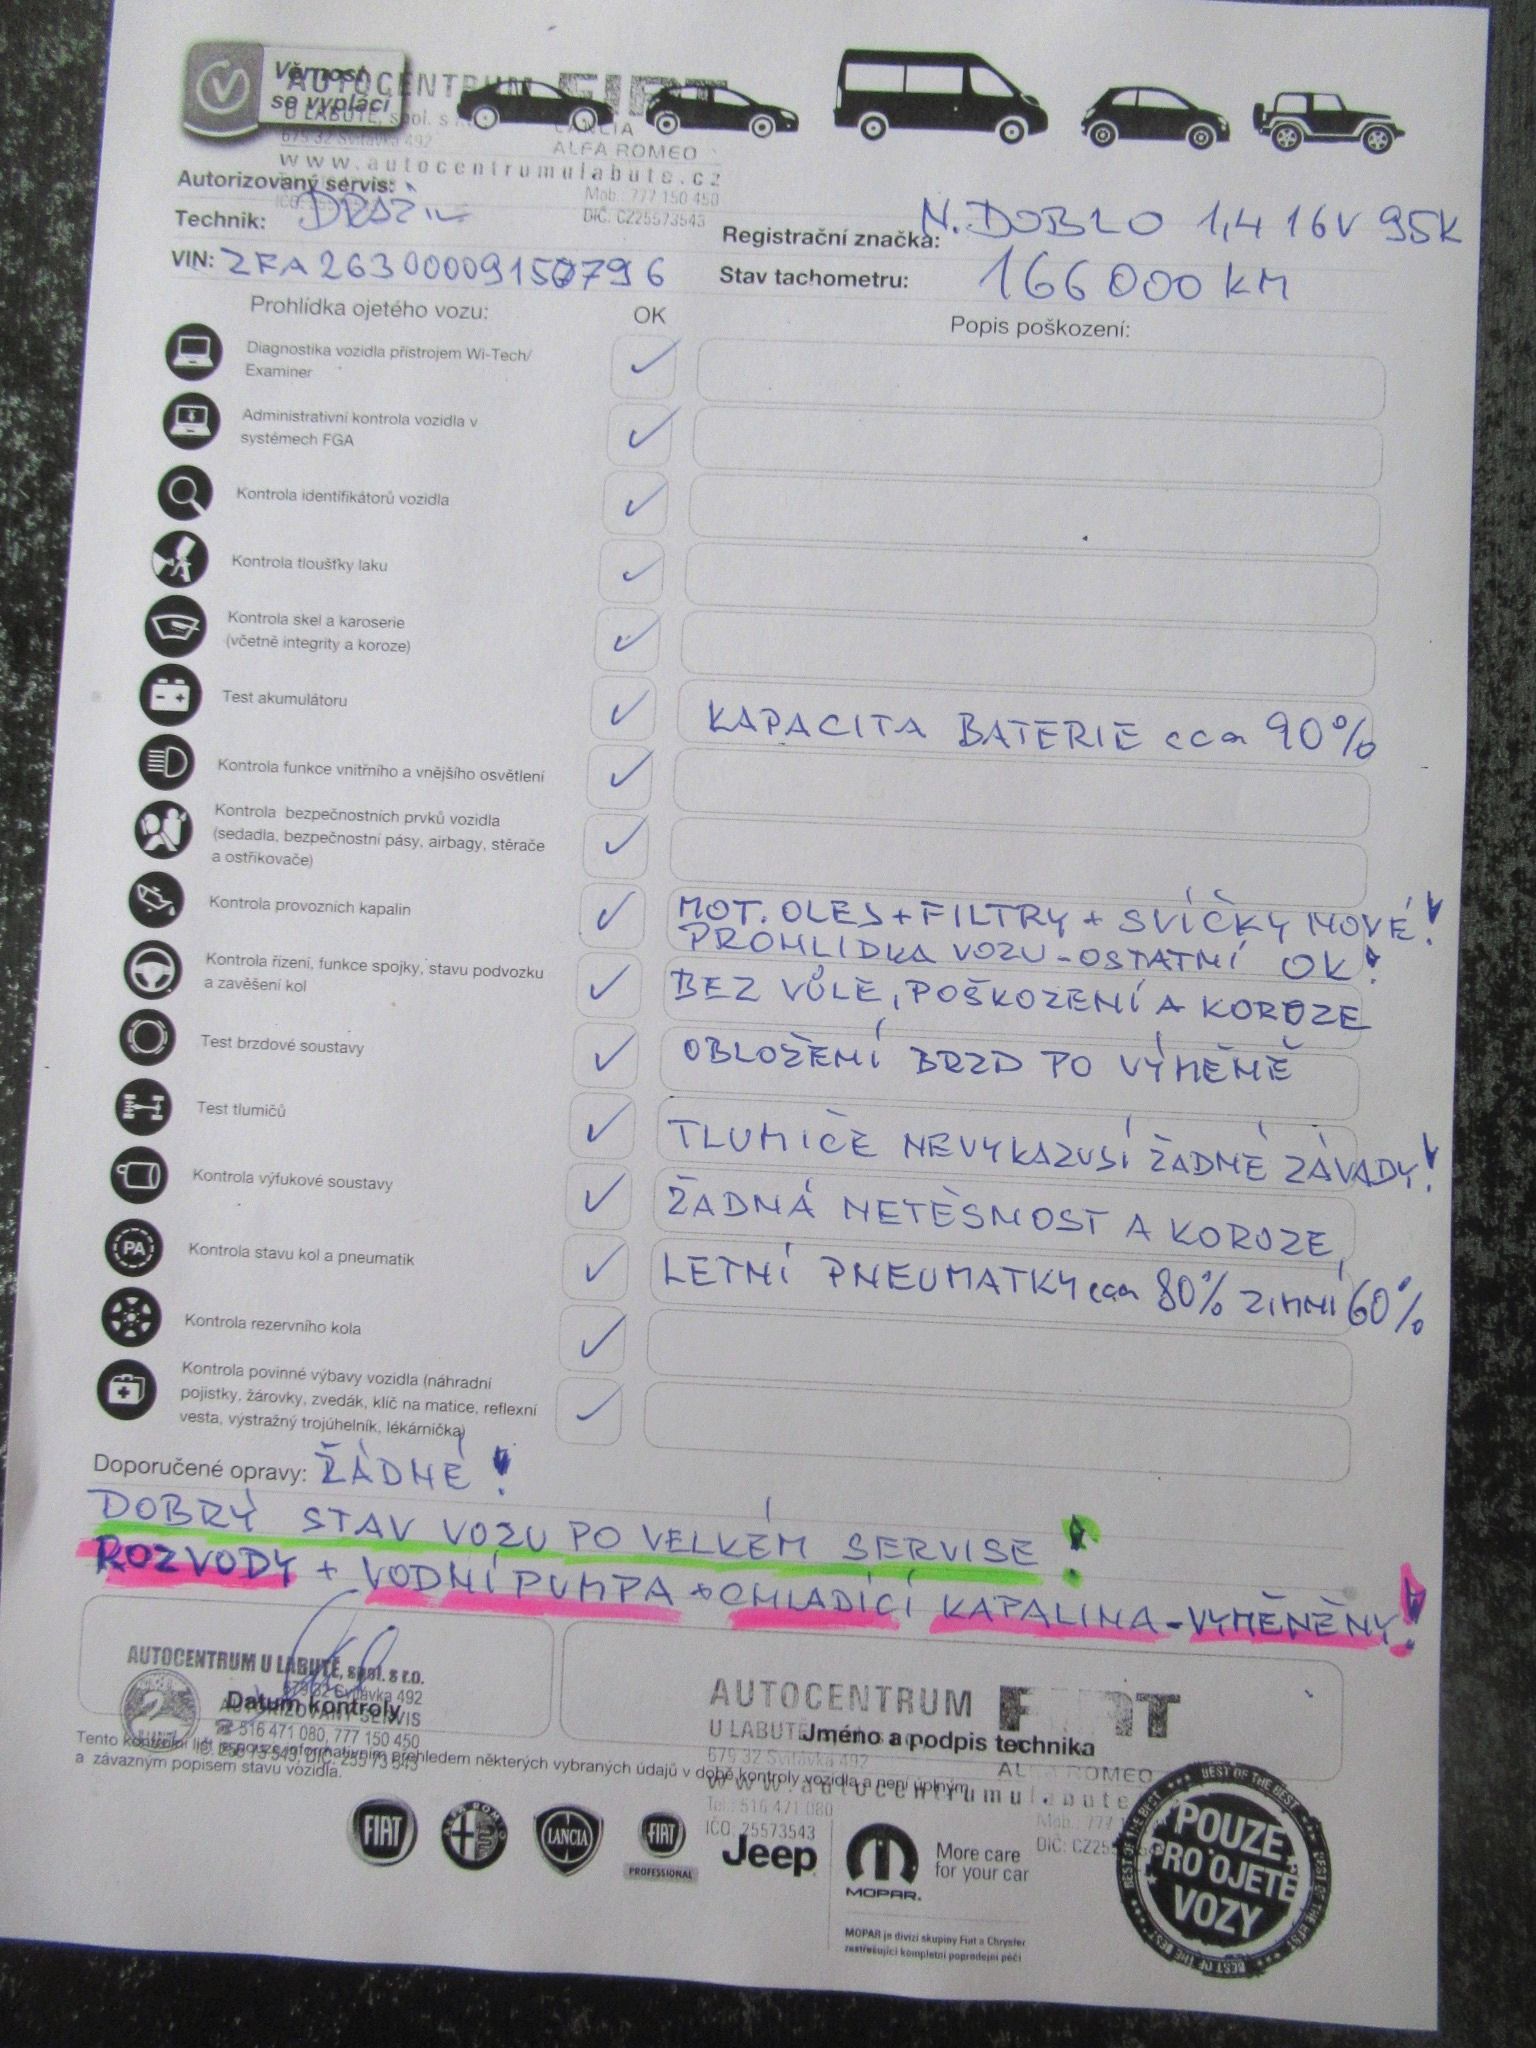 Věrnost
se vyplácí
AUTOCENTRUM FIAT
U LABUTĚ, spol. s r.
679 32 Svitávka 492
LANCIA
ALFA ROMEO
www.autocentrumulabute.cz
Autorizovaný servis:
Mob.: 777 150 450
DIČ: CZ25573543
Technik:
Registrační značka: N. DOBLO 1,4 16V 95K
VIN: ZFA26300009150796
Stav tachometru: 166 000 KM
Prohlídka ojetého vozu: OK Popis poškození:
Diagnostika vozidla přístrojem Wi-Tech/
Examiner
Administrativní kontrola vozidla v
systémech FGA
Kontrola identifikátorů vozidla
Kontrola tloušťky laku
Kontrola skel a karoserie
(včetně integrity a koroze)
Test akumulátoru
KAPACITA BATERIE cca 90%
Kontrola funkce vnitřního a vnějšího osvětlení
Kontrola bezpečnostních prvků vozidla
(sedadla, bezpečnostní pásy, airbagy, stěrače
a ostřikovače)
Kontrola provozních kapalin
MOT. OLEJ + FILTRY + SVÍČKY NOVÉ!
PROHLÍDKA VOZU - OSTATNÍ OK!
Kontrola řízení, funkce spojky, stavu podvozku
a zavěšení kol
BEZ VŮLE, POŠKOZENÍ A KOROZE
Test brzdové soustavy
OBLOŽENÍ BRZD PO VÝMĚNĚ
Test tlumičů
TLUMIČE NEVYKAZUJÍ ŽADNÉ ZÁVADY!
Kontrola výfukové soustavy
ŽADNÁ NETĚSNOST A KOROZE
PA
Kontrola stavu kol a pneumatik
LETNÍ PNEUMATKY cca 80% ZIMNÍ 60%
Kontrola rezervního kola
Kontrola povinné výbavy vozidla (náhradní
pojistky, žárovky, zvedák, klíč na matice, reflexní
vesta, výstražný trojúhelník, lékárnička)
Doporučené opravy: ŽÁDNÉ!
DOBRÝ STAV VOZU PO VELKÉM SERVISE!
ROZVODY + VODNÍ PUMPA + CHLADÍCÍ KAPALINA - VYMĚNĚNY!
AUTOCENTRUM U LABUTĚ, spol. s r.o.
679 32 Svitávka 492
Datum kontroly
AUTORIZOVANÝ SERVIS
516 471 080, 777 150 450
IČ: 255 73 543, DIČ: 255 73 543
AUTOCENTRUM FIAT
U LABUTĚ
Jméno a podpis technika
679 32 Svitávka 492
ALFA ROMEO
www.autocentrumulabute
Tel.: 516 471 080
IČO: 25573543
Mob.: 777 1
DIČ: CZ255
Tento kontrolní list je pouze informativním přehledem některých vybraných údajů v době kontroly vozidla a není úplným
a závazným popisem stavu vozidla.
FIAT
ALFA ROMEO
LANCIA
FIAT
PROFESSIONAL
Jeep
MOPAR.
More care
for your car
MOPAR je divizí skupiny Fiat a Chrysler
zastřešující kompletní poprodejní péči
BEST OF THE BEST
POUZE
PRO OJETÉ
VOZY